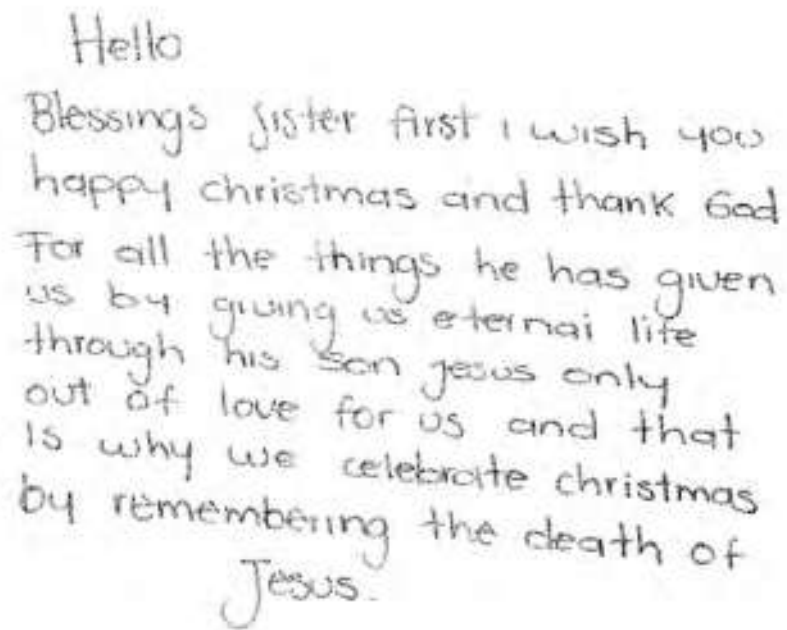 Hello
Blessings sister first i wish you
happy christmas and thank God
For all the things he has given
us by giving us eternal life
through his son jesus only
out of love for us and that
is why we celebrate christmas
by remembering the death of
Jesus.